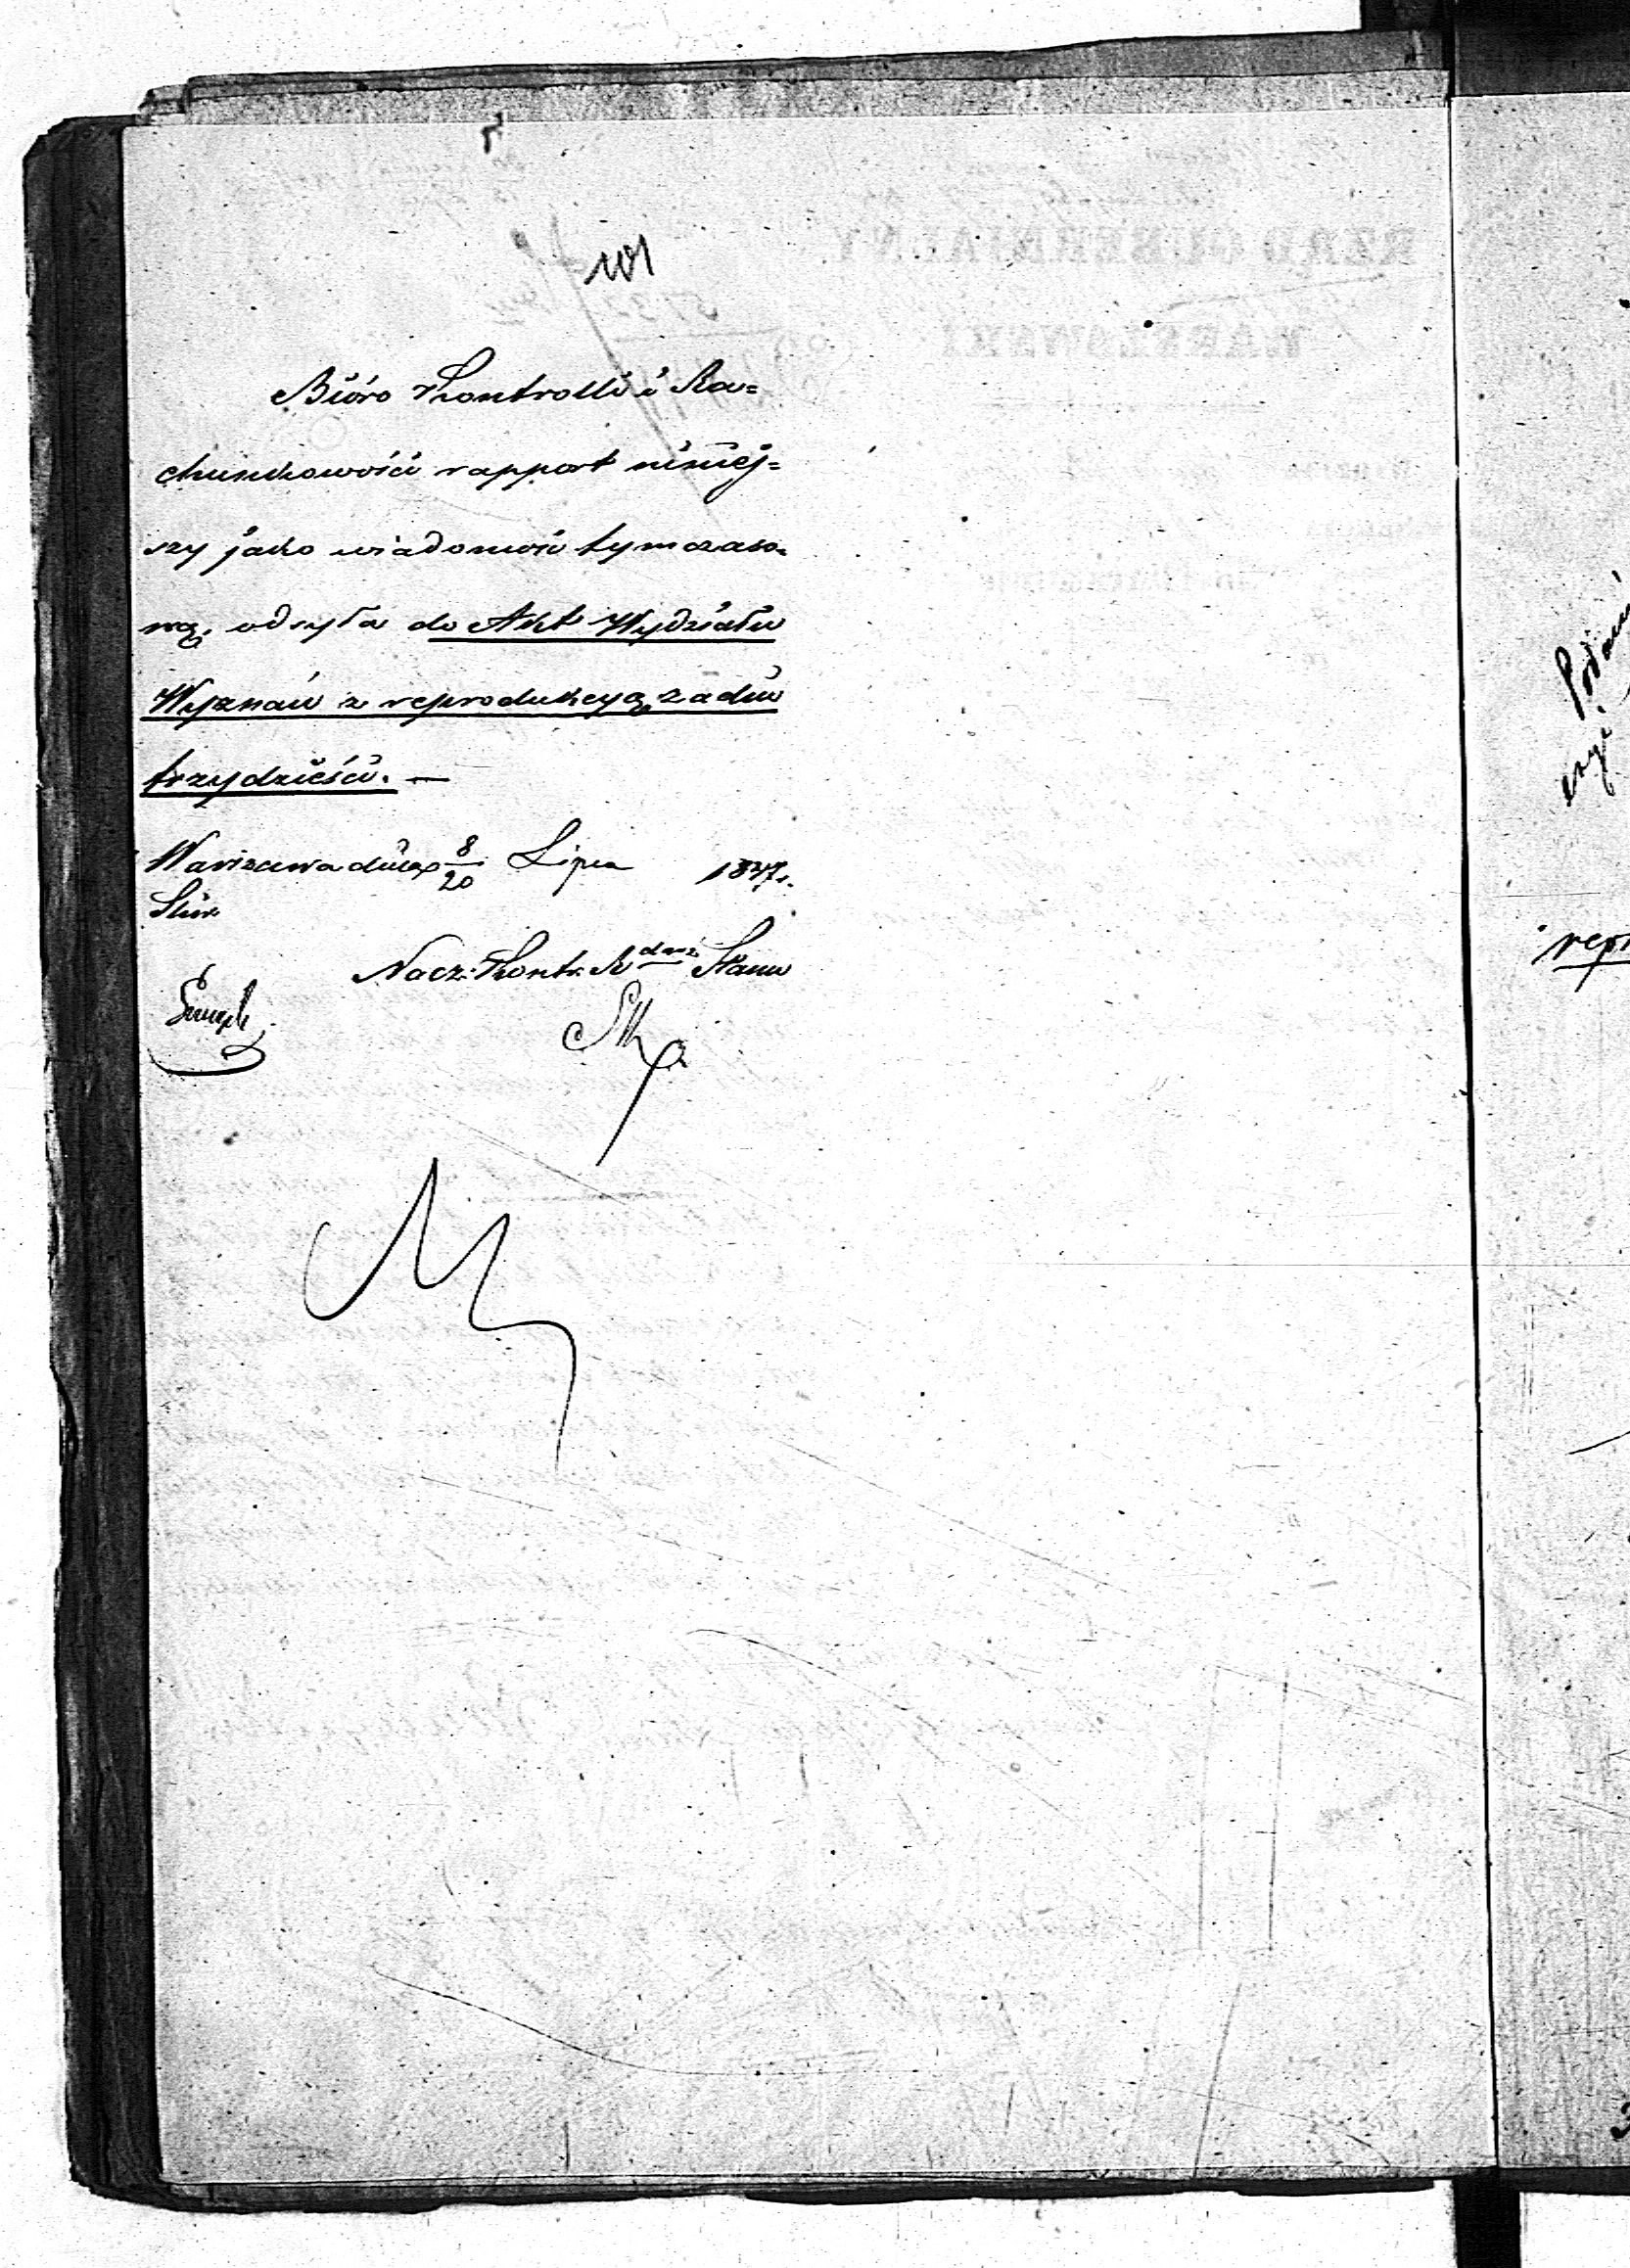 101
Biuro Kontrolli i Ra=
chunkowości rapport niniej=
szy jako wiadomość tymczaso=
wą, odsyła do Akt Wydziału
Wyznań z reprodukcyą za dni
trzydzieści. —
Warszawa dnia 8/20 Lipca 1847 r.
Nacz: Kontr: R Stanu